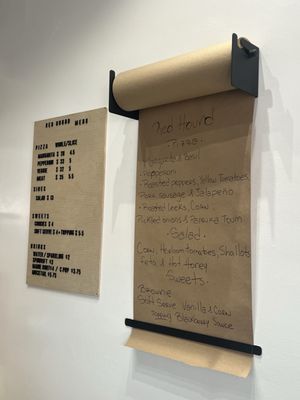 RED HOUND MENU
PIZZA WHOLE/SLICE
MARGARITA $ 28 4.5
PEPPERONI $ 32 5
VEGGIE $ 32 5
MEAT $ 35 5.5
SIDES
SALAD $ 13
SWEETS
COOKIES $ 4
SOFT SERVE $ 6 + TOPPING $ 0.5
DRINKS
WATER / SPARKLING $2
SPINDRIFT $3
MEXICAN
Red Hound
- Pizza -
& Basil
• Pepperoni
• Roasted peppers, Yellow Tomatoes,
Pork sausage & Jalapeño
• Roasted Leeks, Corn,
Pickled onions & Paprika Toum
- Salad -
Corn, Heirloom tomatoes, Shallots
Feta & Hot Honey
- Sweets -
Brownie
Soft Serve Vanilla & Corn
topping Blackberry Sauce